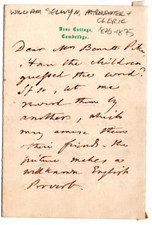 WILLIAM SELWYN,
CLERIC
1806-1875
Vine Cottage,
Cambridge.
Dear Mrs Bennett
Have the children
guessed the word?
If so, let me
reward them by
another, which
may amuse them
& their friends. The
picture makes a
well known English
Proverb.